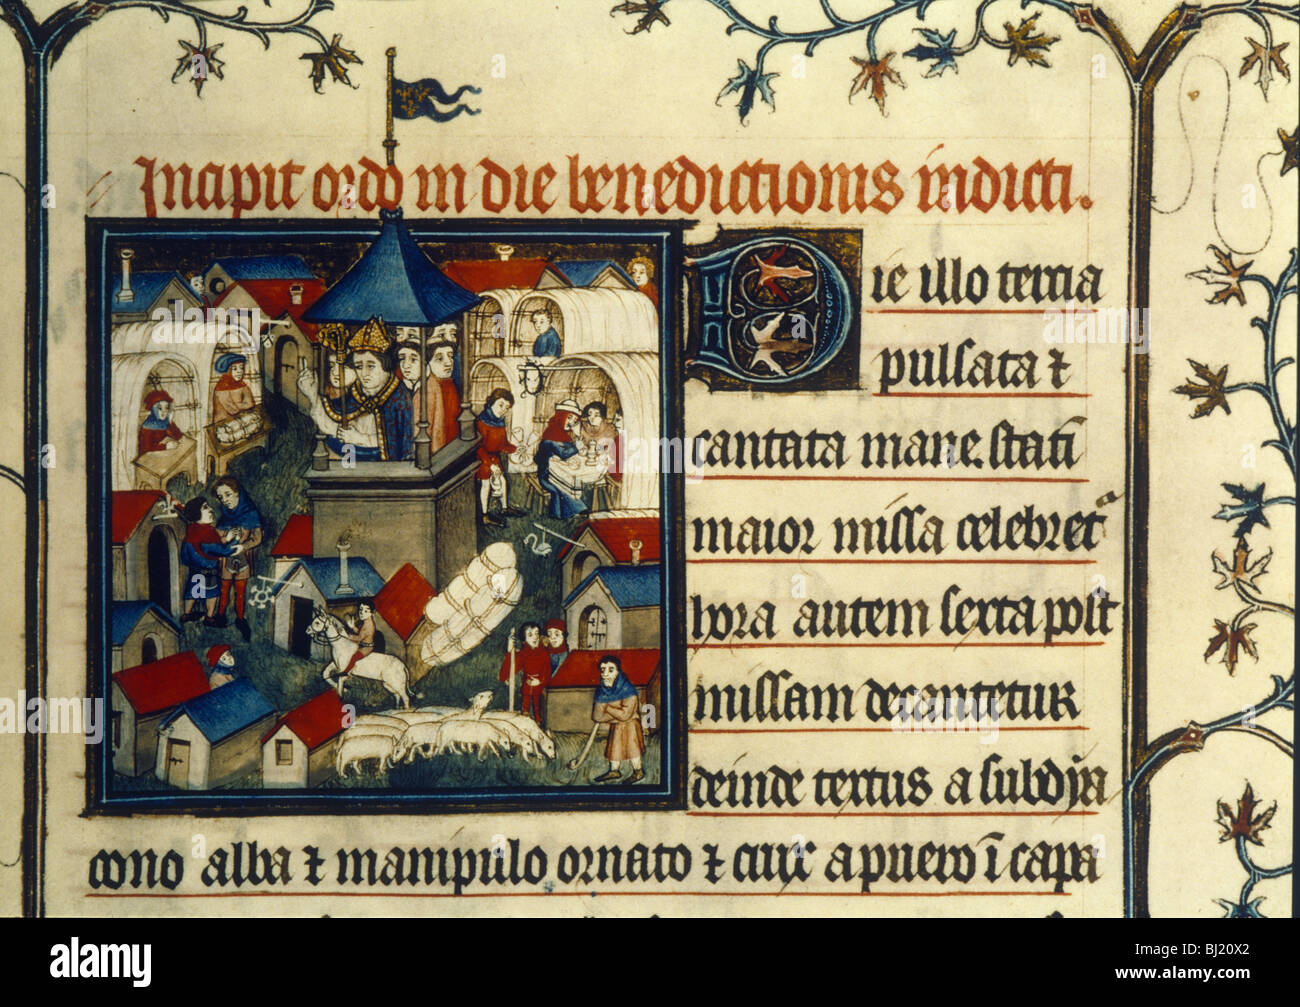 Incipit ordo in die benedictionis indicti.
Die illo tercia
pulsata ⁊
cantata mane. stati
maior missa celebret
hora autem sexta post
missam decantetur
deinde textus a subdya
cono alba ⁊ manipulo ornato ⁊ crux a puero ī capa
alamy
alamy
Image ID: BJ20X2
www.alamy.com